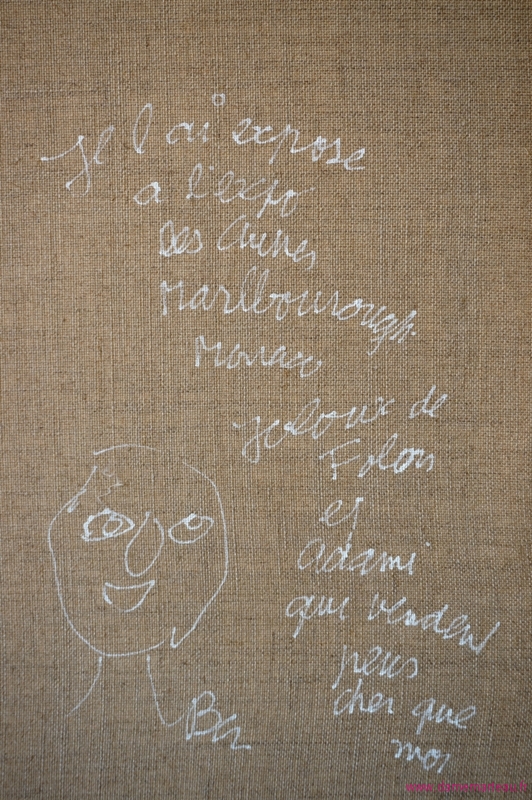 Je l ai expose
a l'expo
des
Marlbourough
Monaco
Jaloux de
Folon
et
adami
qui venden
peus
cher que
moi
Ben